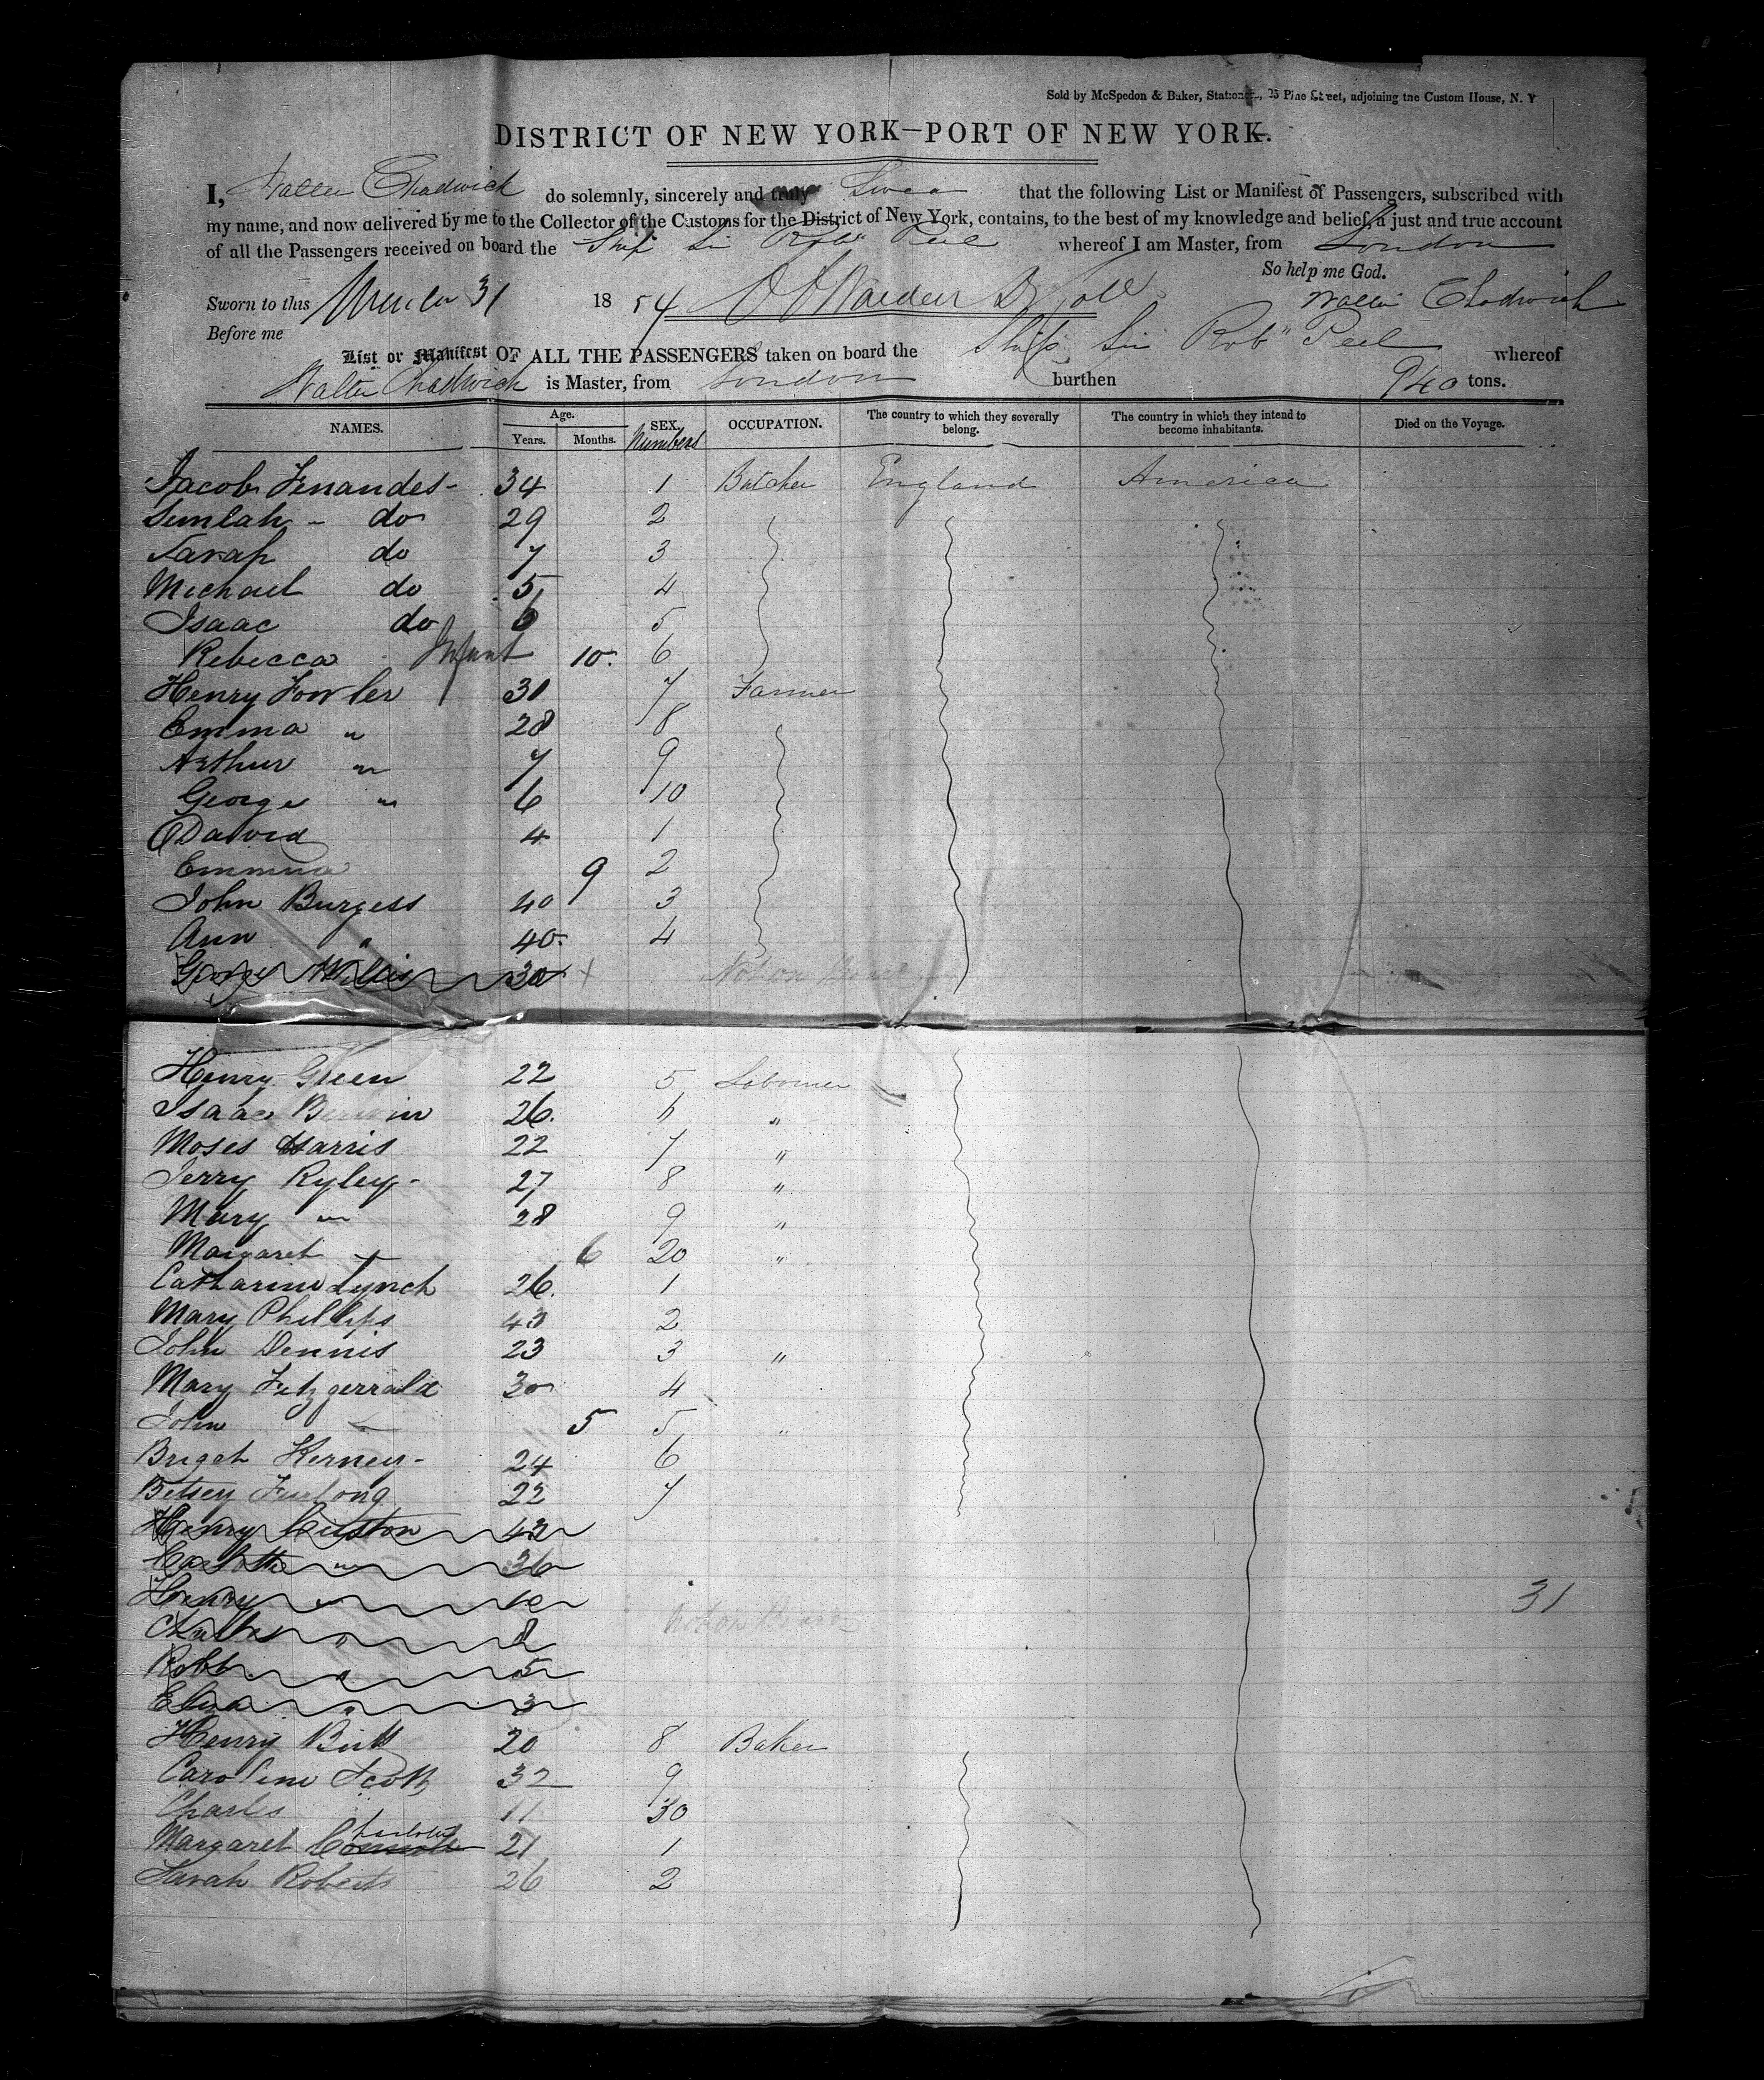 Sold by McSpedon & Baker, Stationers, 25 Pine Street, adjoining the Custom House, N. Y
DISTRICT OF NEW YORK—PORT OF NEW YORK.
I, Walter Chadwick do solemnly, sincerely and truly Swear that the following List or Manifest of Passengers, subscribed with
my name, and now delivered by me to the Collector of the Customs for the District of New York, contains, to the best of my knowledge and belief, a just and true account
of all the Passengers received on board the Ship Sir Robt Peel whereof I am Master, from London
So help me God.
Sworn to this 31 1854 Walter Chadwick
Before me
List or Manifest OF ALL THE PASSENGERS taken on board the Ship Sir Robt Peel whereof
Walter Chadwick is Master, from London burthen 940 tons.
NAMES. Age. Years. Months. SEX. Numbers OCCUPATION. The country to which they severally belong. The country in which they intend to become inhabitants. Died on the Voyage.
Jacob Fenandes - 34 1 Butcher England America
Simlah - do 29 2
Sarah do 7 3
Michael do 5 4
Isaac do 6 5
Rebecca Infant 10 6
Henry Fowler 31 7 Farmer
Emma " 28 8
Arthur " 7 9
George " 6 10
David 4 1
Emma 9 2
John Burgess 40 3
Ann " 40 4
George Willis 30 Not on Board
Henry Green 22 5 Labourer
Isaac 26 6 "
Moses Harris 22 7 "
Jerry Ryley - 27 8 "
Mary " 28 9 "
Margaret " 6 20 "
Catharine Lynch 26 1
Mary Phillips 43 2
John Dennis 23 3 "
Mary Fitzgerrald 30 4
John " 5 5 "
Briget Kerney - 24 6
Betsey Furlong 22 7
Henry Custon 43
Charlotte " 36
Henry " 10 31
Charles " 8 Not on Board
Robt " 5
Eliza " 3
Henry Butt 20 8 Baker
Caroline Scott 32 9
Charles 11 30
Margaret Charlotte 21 1
Sarah Roberts 26 2